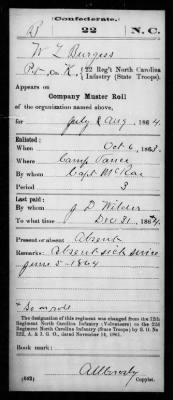 Confederate.
B 22 N.C.
W L Burgess
Pvt Co K, 22 Reg't North Carolina
Infantry (State Troops).
Appears on
Company Muster Roll
of the organization named above,
for July & Aug, 1864
Enlisted:
When Oct 6, 186
Where Camp Vance
By whom Capt McRae
Period 3
Last paid:
By whom J D Wilder
To what time Dec 31, 186
Present or absent Absent
Remarks: Absent sick since
June 5 - 1864
The designation of this regiment was changed from the 12th
Regiment North Carolina Infantry (Volunteers) to the 22d
Regiment North Carolina Infantry (State Troops) by S. O. No
222, A. & I. G. O., dated November 14, 1861.
Book mark:
(642) Copyist.